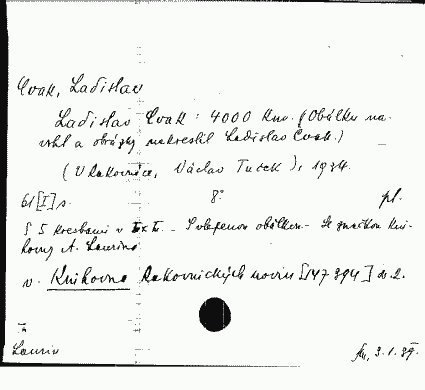 Cvak, Ladislav
Ladislav Cvak: 4000 Knm. (Obálku na-
vrhl a obrázky nakreslil Ladislav Cvak.)
(V Rakovníce, Václav Tuček), 1934.
61 [I] s. 8° pl.
S 5 kresbami v - S vlepenou obálkou - Se značkou Kni-
hovny A. Laurina
v. Knihovna Rakovnických novin [147894] sv. 2.
Laurin
3.1.39.